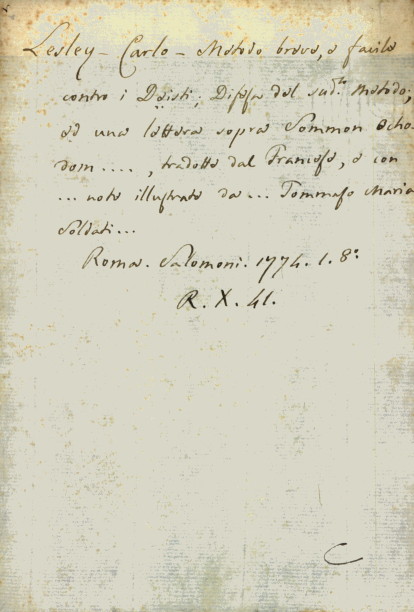 Lesley - Carlo - Metodo breve, e facile
contro i Deisti; Difesa del sud.to Metodo;
ed una lettera sopra Sommon Ocho
dom ...., tradotte dal Francese, e con
... note illustrate da ... Tommaso Maria
Soldati ...
Roma. Salomoni. 1774. 1. 8.o
R. X. 41.
C